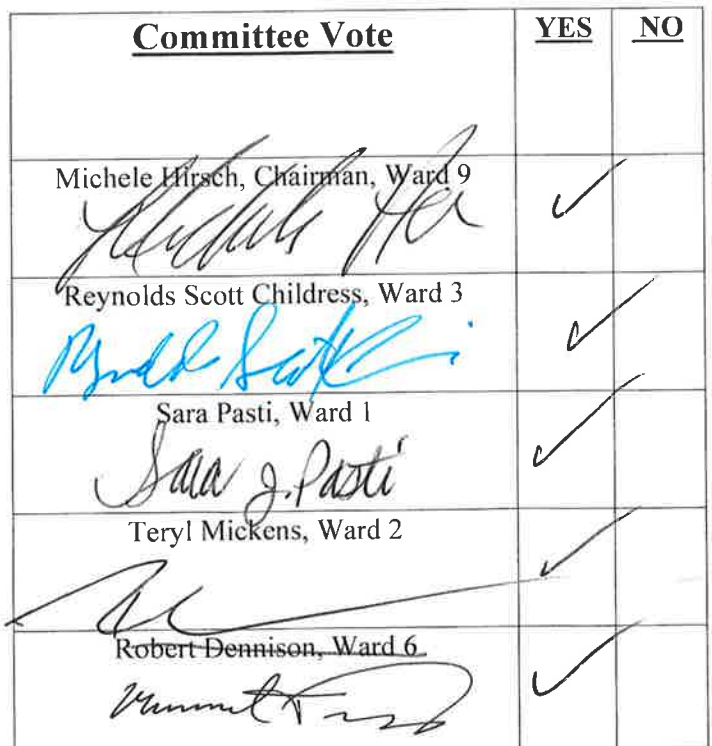 Committee Vote YES NO
Michele Hirsch, Chairman, Ward 9 ✓
Reynolds Scott Childress, Ward 3 ✓
Sara Pasti, Ward 1 ✓
Sara J. Pasti
Teryl Mickens, Ward 2 ✓
Robert Dennison, Ward 6 ✓